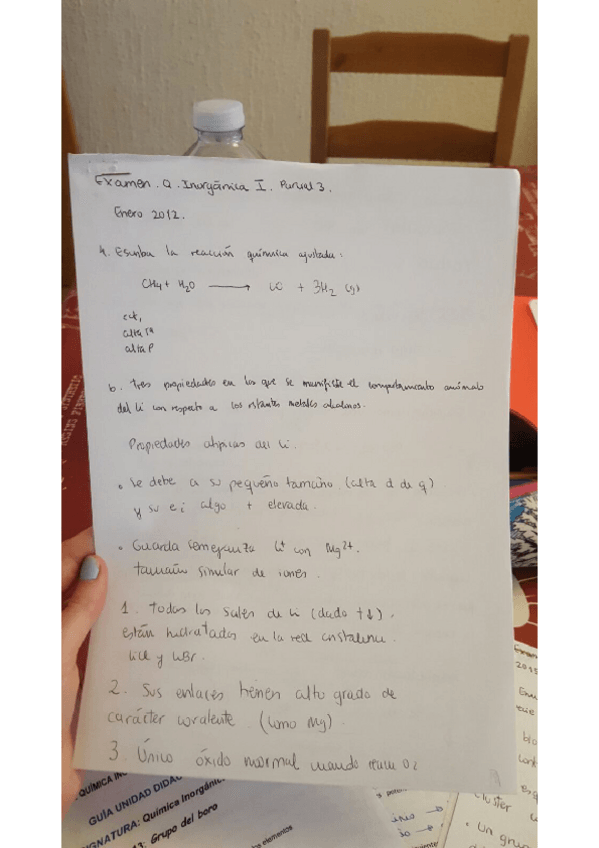 Examen. Q. Inorgánica I. Parcial 3.
Enero 2012.
4. Escriba la reacción química ajustada:
CH4 + H2O ⟶ CO + 3H2 (g)
cat,
alta Tª
alta P
b. Tres propiedades en las que se manifieste el comportamiento anómalo
del Li con respecto a los restantes metales alcalinos.
Propiedades atípicas del Li.
• Se debe a su pequeño tamaño. (alta d de q)
y su ei algo + elevada.
• Guarda semejanza Li+ con Mg2+.
tamaño similar de iones.
1. Todas las sales de Li (dado t↓),
están hidratados en la red cristalina.
LiCl y LiBr.
2. Sus enlaces tienen alto grado de
carácter covalente. (como Mg).
3. Único óxido normal cuando O2
QUÍMICA IN
GUÍA UNIDAD DIDÁC
SIGNATURA: Química Inorgáni
13: Grupo del boro
los elementos
cluster
• Un grup